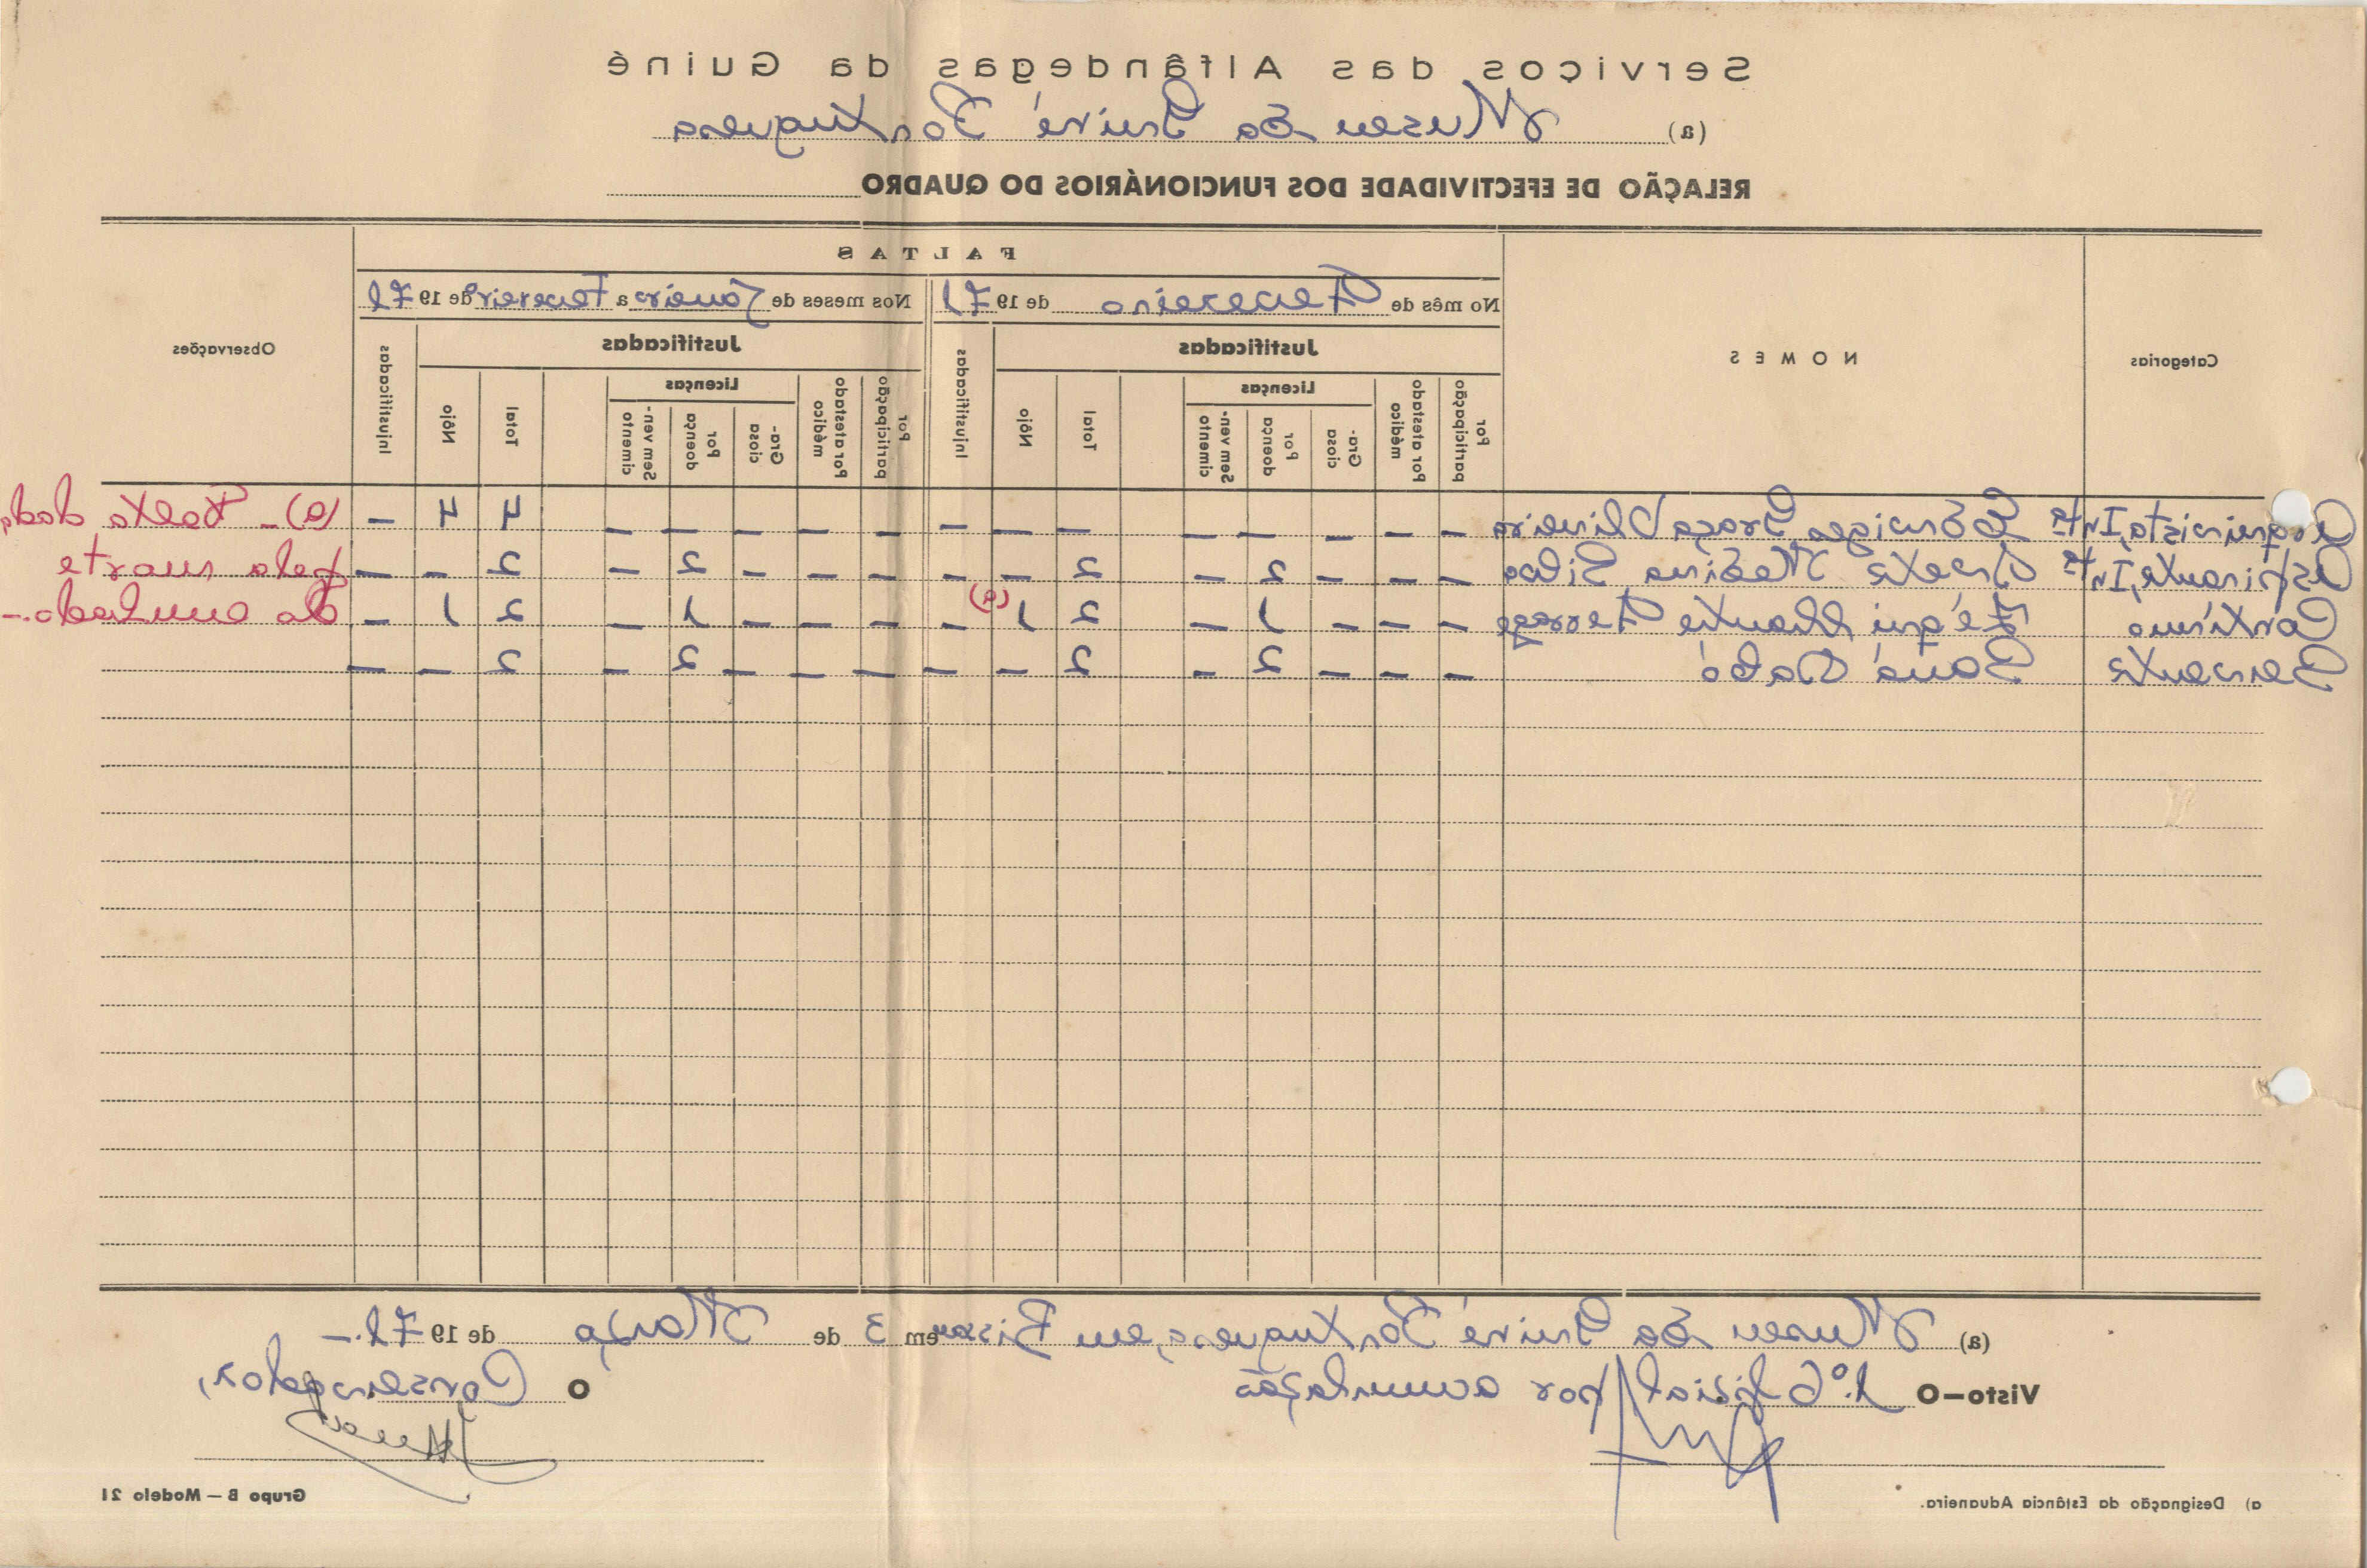 Serviços das Alfândegas da Guiné
(a) Museu da Guiné Portuguesa
RELAÇÃO DE EFECTIVIDADE DOS FUNCIONÁRIOS DO QUADRO
Categorias
NOMES
FALTAS
Observações
No mês de Fevereiro de 1971
Nos meses de Janeiro a Fevereiro de 1971
Justificadas
Injustificadas
Justificadas
Injustificadas
Por participação
Por atestado médico
Licenças
Gra-ciosa
Por doença
Sem ven-cimento
Total
Nôjo
Por participação
Por atestado médico
Licenças
Gra-ciosa
Por doença
Sem ven-cimento
Total
Nôjo
Arquivista, Intª Graça Oliveira — — — — — — — — — — — — — 4 4 — (a) – Falta dada
Aspirante, Intª Silva — — — 2 — 2 — — — — — 2 — 2 — — pela morte
Contínuo Duarte — — — 1 — 2 1 (a) — — — — 1 — 2 1 — do cunhado.–
Servente — — — 2 — 2 — — — — — 2 — 2 — —
(a) Museu da Guiné Portuguesa, em Bissau em 3 de Março de 1971.–
Visto—O 1.º Oficial por acumulação
O Conservador,
a) Designação da Estância Aduaneira.
Grupo B — Modelo 21